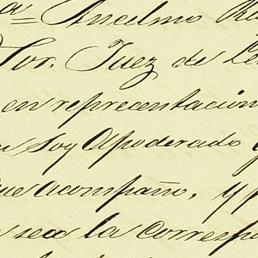 Anselmo
Sor. Juez de
en reprecentacion
Soy Apoderado
que acompaño, y
sea la